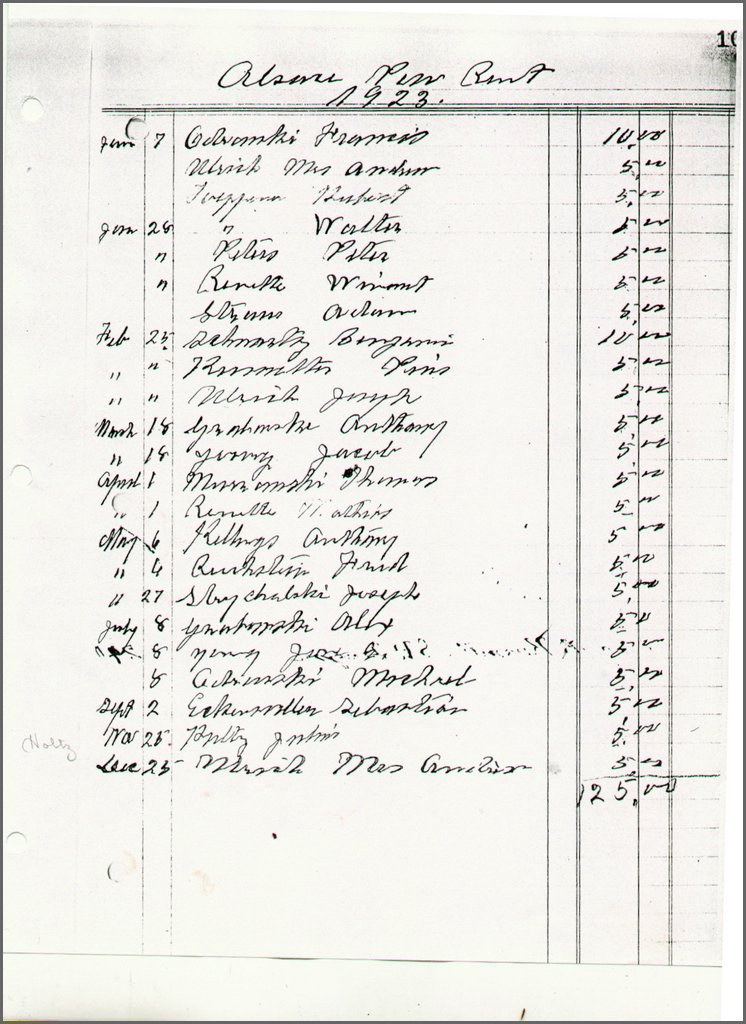 10
Alsace Pew Rent
1923.
Jan 7 Odromski Francis 10.00
Ulrich Mrs Andrew 5.00
Toeppena Hubert 5.00
Jan 28 " Walter 5.00
" Peters Peter 5.00
" Renette Winant 5.00
Straus Adam 5.00
Feb 25 Schwartz Benjamin 10.00
" " Pius 5.00
" " Ulrich Joseph 5.00
March 18 Grabowski Anthony 5.00
" 18 Young Jacob 5.00
April 1 Thomas 5.00
" 1 Renette Mathias 5.00
May 6 Anthony 5.00
" 6 Fred 5.00
" 27 Strychalski Joseph 5.00
July 8 Grabowski Alex 5.00
8 Young 5.00
8 Odromski Michael 5.00
Sept 2 Eckenroder Sebastian 5.00
Nov 25. Holtz Julius 5.00
Holtz
Dec 25 Ulrich Mrs Andrew 5.00
125.00